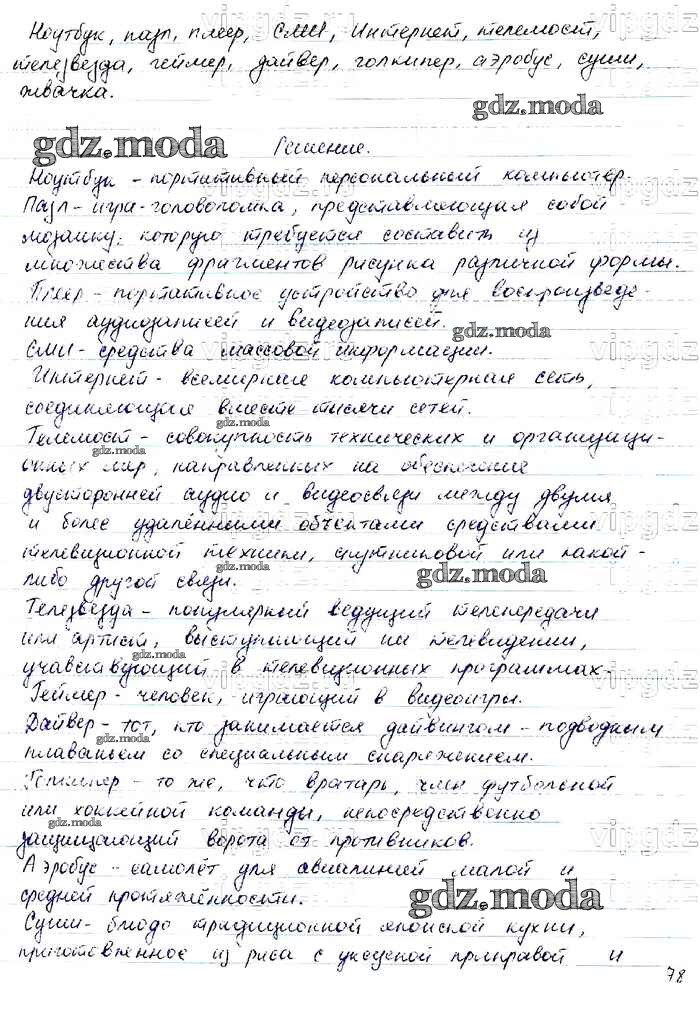 Ноутбук, пазл, плеер, СМИ, Интернет, телемост,
телезвезда, геймер, дайвер, голкипер, аэробус, суши,
жвачка.
gdz.moda
gdz.moda Решение.
Ноутбук - портативный персональный компьютер.
Пазл - игра-головоломка, представляющая собой
мозаику, которую требуется составить из
множества фрагментов рисунка различной формы.
Плеер - портативное устройство для воспроизведе-
ния аудиозаписей и видеозаписей.
gdz.moda
СМИ - средства массовой информации.
Интернет - всемирная компьютерная сеть,
соединяющая вместе тысячи сетей.
Телемост - совокупность технических и организаци-
gdz.moda
gdz.moda
онных мер, направленных на обеспечение
двусторонней аудио и видеосвязи между двумя
и более удалёнными объектами средствами
телевизионной техники, спутниковой или какой-
либо другой связи.
gdz.moda
gdz.moda
Телезвезда - популярный ведущий телепередачи
или артист, выступающий на телевидении,
gdz.moda
учавствующий в телевизионных программах.
Геймер - человек, играющий в видеоигры.
Дайвер - тот, кто занимается дайвингом - подводным
gdz.moda
плаваньем со специальным снаряжением.
Голкипер - то же, что вратарь, член футбольной
или хоккейной команды, непосредственно
gdz.moda
защищающий ворота от противников.
Аэробус - самолёт для авиалиний малой и
средней протяжённости.
gdz.moda
gdz.moda
Суши - блюдо традиционной японской кухни,
приготовленное из риса с уксусной приправой и
78
vipgdz
vipgdz
vipgdz
vipgdz
vipgdz
vipgdz
vipgdz